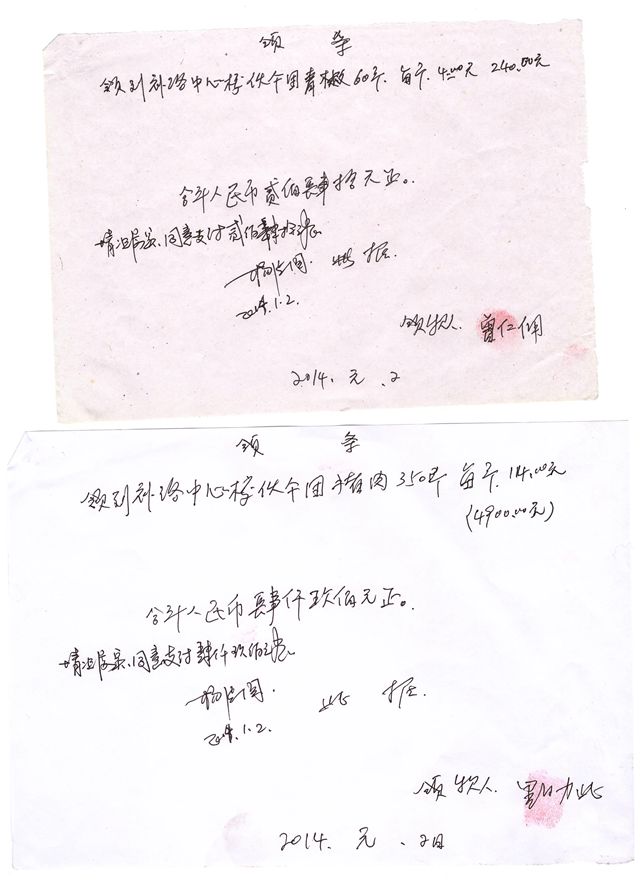 领 条
领到补洛中心校伙个团青椒60斤.每斤.4.00元 240.00元
合计人民币贰佰肆拾元正。
情况属实、同意支付贰佰肆拾元
此 据.
2014.1.2.
领款人. 曾仁佣
2014. 元 .2
领 条
领到补洛中心校伙个团猪肉350斤 每斤.14.00元
(4900.00元)
合计人民币肆仟玖佰元正。
情况属实、同意支付肆仟玖佰元
此 据.
2014.1.2.
领款人.
2014. 元 .2日